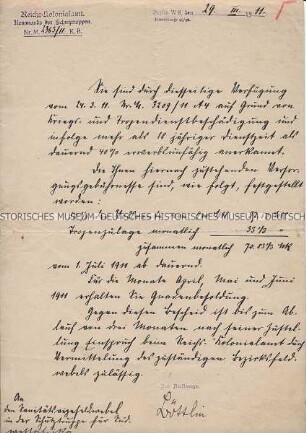 Reichs-Kolonialamt.
Kommando der Schutztruppen
Nr. M. 2363/11 K. B.
Berlin W 8, den 29. III. 1911.
Sie sind durch diesseitige Verfügung
vom 24.3.11. Nr. 3203/11 A4 auf Grund von
Kriegs- und Tropendienstbeschädigung und
infolge mehr als 18 jähriger Dienstzeit als
dauernd 40% erwerbsunfähig anerkannt.
Die Ihnen hiernach zustehenden Versor-
gungsgebührnisse sind, wie folgt, festgestellt
worden:
STORISCHES MUSEUM DEUTSCHES HISTORISCHES MUSEUM DEUTSCHES HISTORISCHES
Tropenzulage monatlich 33 1/3 "
zusammen monatlich
vom 1. Juli 1911 ab dauernd.
Für die Monate April, Mai und Juni
1911 erhalten Sie Gnadenbesoldung.
Gegen diesen Bescheid ist bis zum Ab-
lauf von drei Monaten nach seiner Zustel-
lung Einspruch beim Reichs-Kolonialamt durch
Vermittelung des zuständigen Bezirksfeld-
webels zulässig.
An
den Sanitätsvizefeldwebel
in der Schutztruppe für Süd-
westafrika